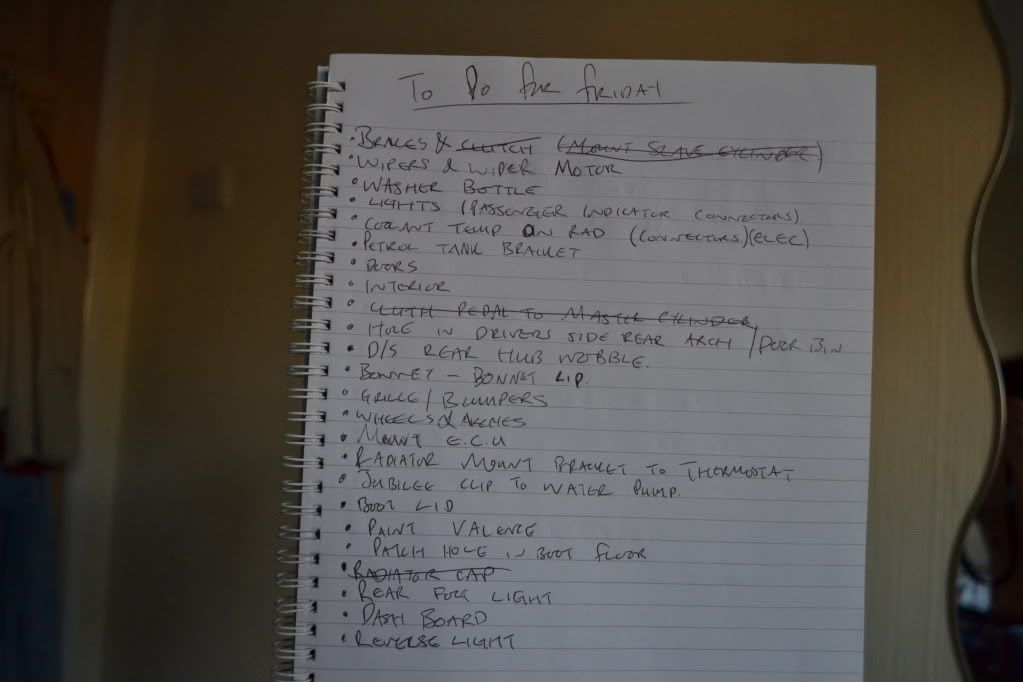 To Do For FRIDAY
• BRAKES & CLUTCH (MOUNT SLAVE CYLINDER)
• WIPERS & WIPER MOTOR
• WASHER BOTTLE
• LIGHTS (PASSENGER INDICATOR CONNECTORS)
• COOLANT TEMP ON RAD (CONNECTORS)(ELEC)
• PETROL TANK BRACKET
• DOORS
• INTERIOR
• CLUTH PEDAL TO MASTER CYLINDER
• HOLE IN DRIVERS SIDE REAR ARCH / DOOR BIN
• D/S REAR HUB WOBBLE.
• BONNET - BONNET LIP.
• GRILLE / BUMPERS
• WHEELS & ARCHES
• MOUNT E.C.U
• RADIATOR MOUNT BRACKET TO THERMOSTAT
• JUBILEE CLIP TO WATER PUMP.
• BOOT LID
• PAINT VALENCE
• PATCH HOLE IN BOOT FLOOR
• RADIATOR CAP
• REAR FOG LIGHT
• DASH BOARD
• REVERSE LIGHT